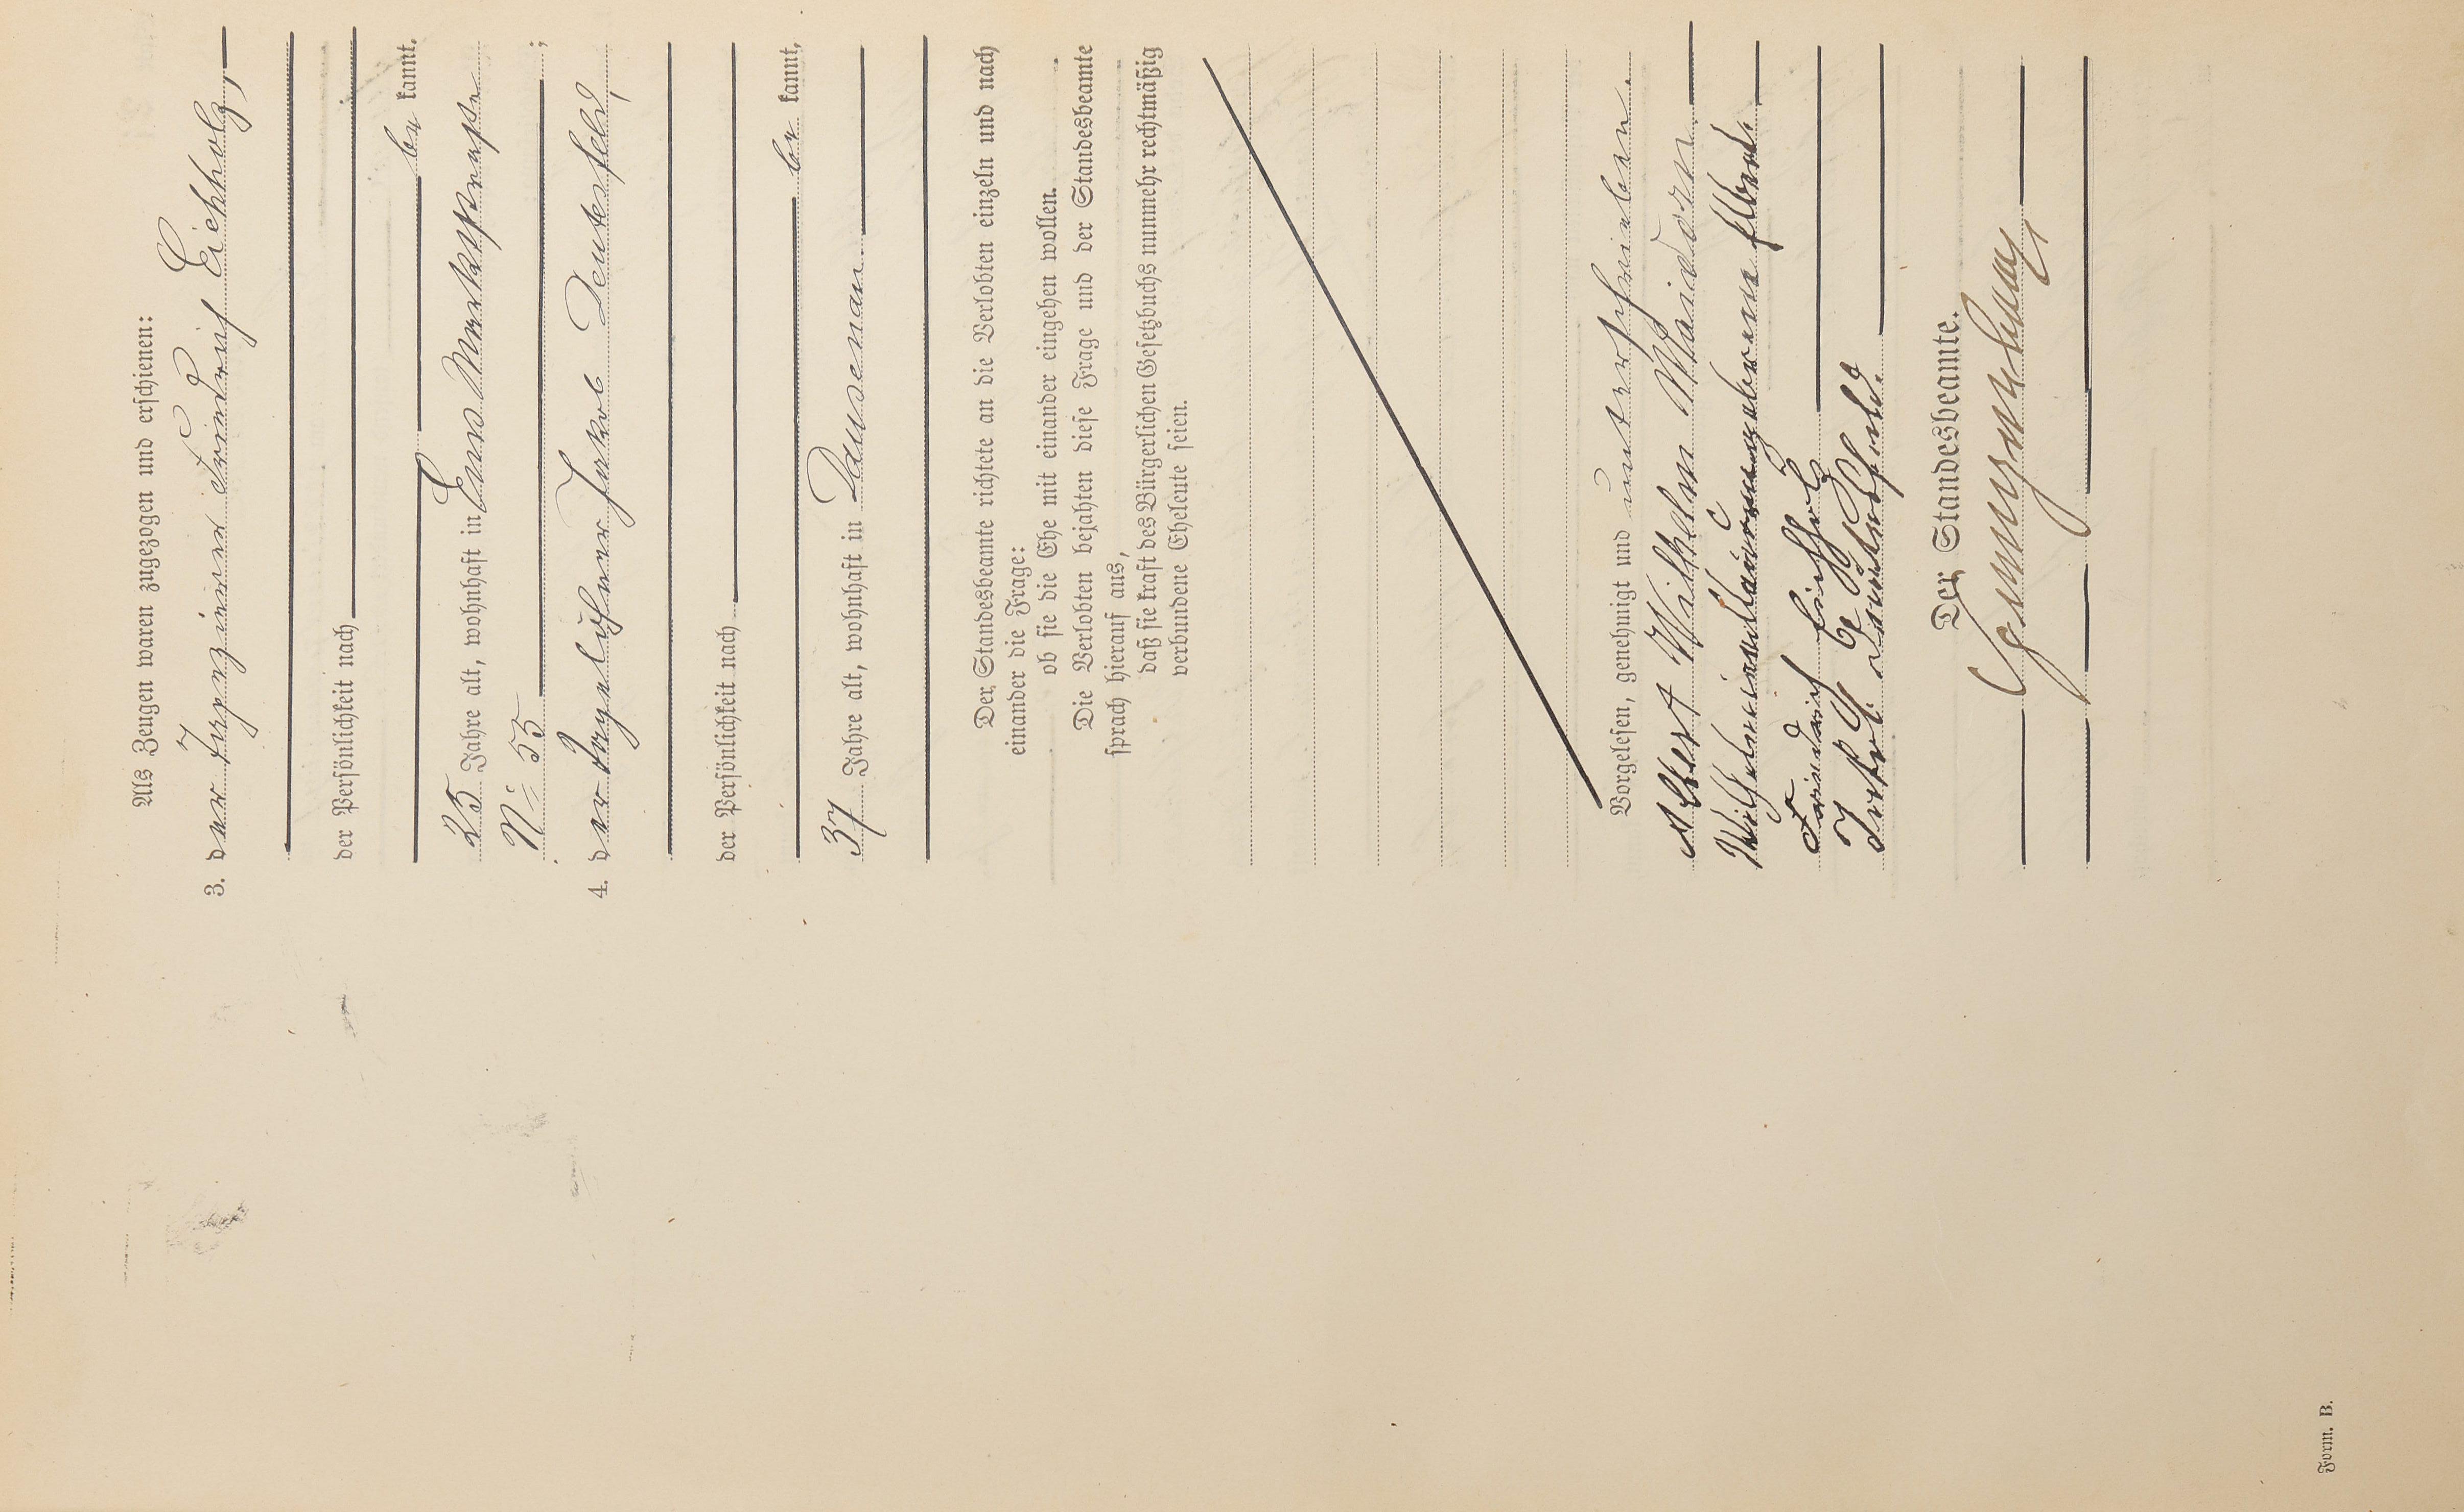 Als Zeugen waren zugezogen und erschienen:
3. der Tapezierer Friedrich Eichholz,
der Persönlichkeit nach
be kannt,
25 Jahre alt, wohnhaft in Ems Marktstraße
No 55 ;
4. der Taglöhner Jakob Deutesfeld,
der Persönlichkeit nach
be kannt,
37 Jahre alt, wohnhaft in Dausenau.
Der Standesbeamte richtete an die Verlobten einzeln und nach
einander die Frage:
ob sie die Ehe mit einander eingehen wollen.
Die Verlobten bejahten diese Frage und der Standesbeamte
sprach hierauf aus,
daß sie kraft des Bürgerlichen Gesetzbuchs nunmehr rechtmäßig
verbundene Eheleute seien.
Vorgelesen, genehmigt und unterschrieben.
Albert Wilhelm Maidorn
Wilhelmine geborene Elbert.
Friedrich Eichholz
Jakob Deutesfeld.
Der Standesbeamte.
Form. B.